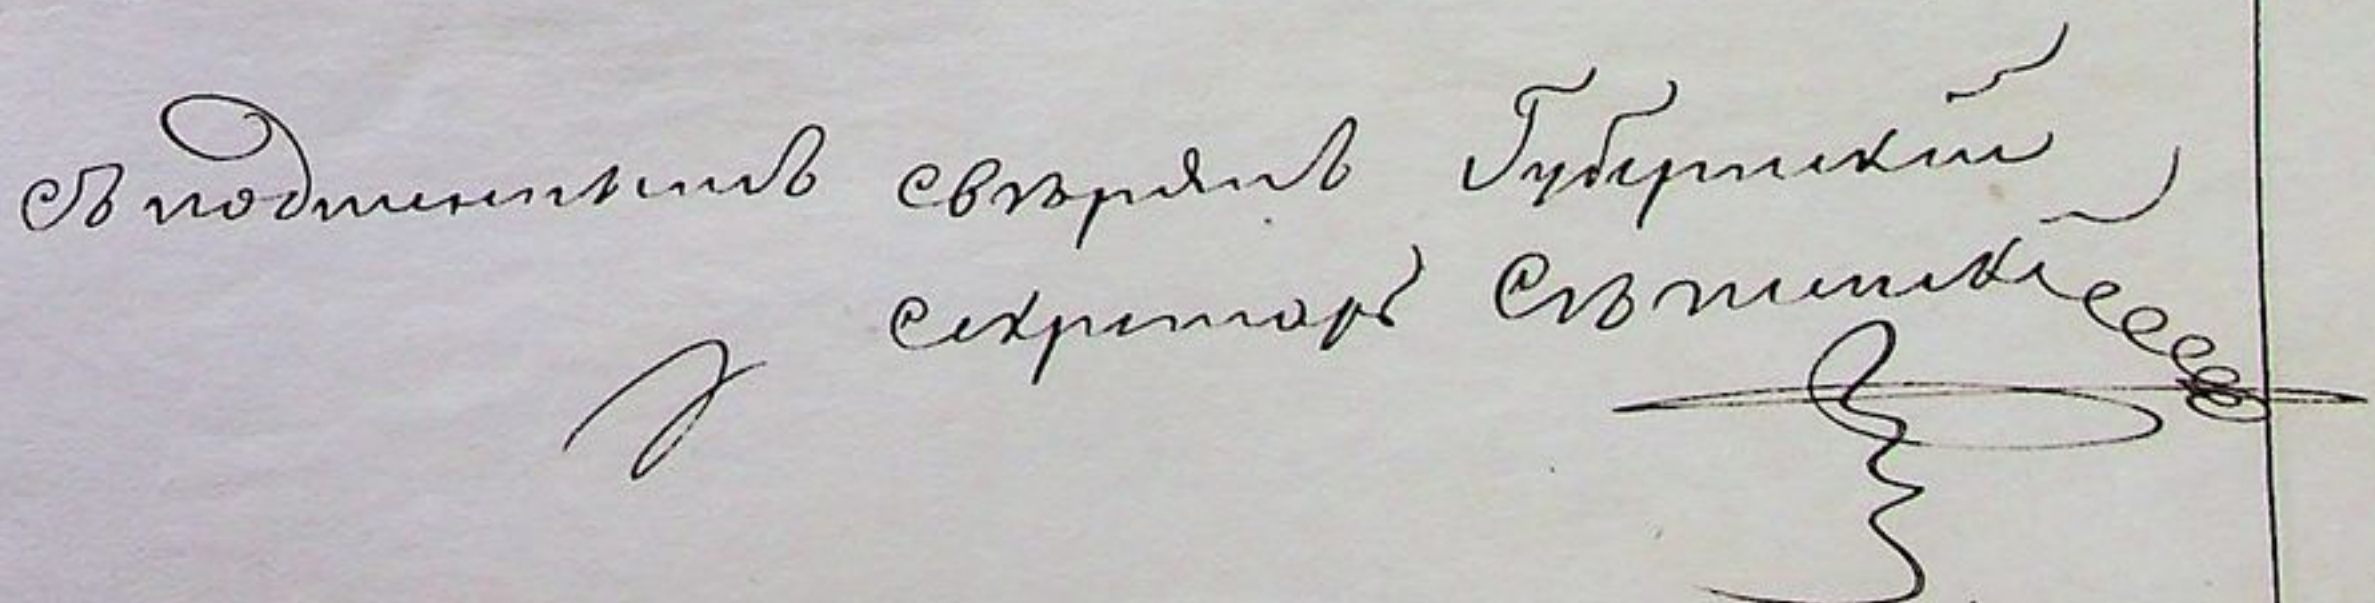 Съ подлиннымъ свѣрялъ Губернскій
секретарь